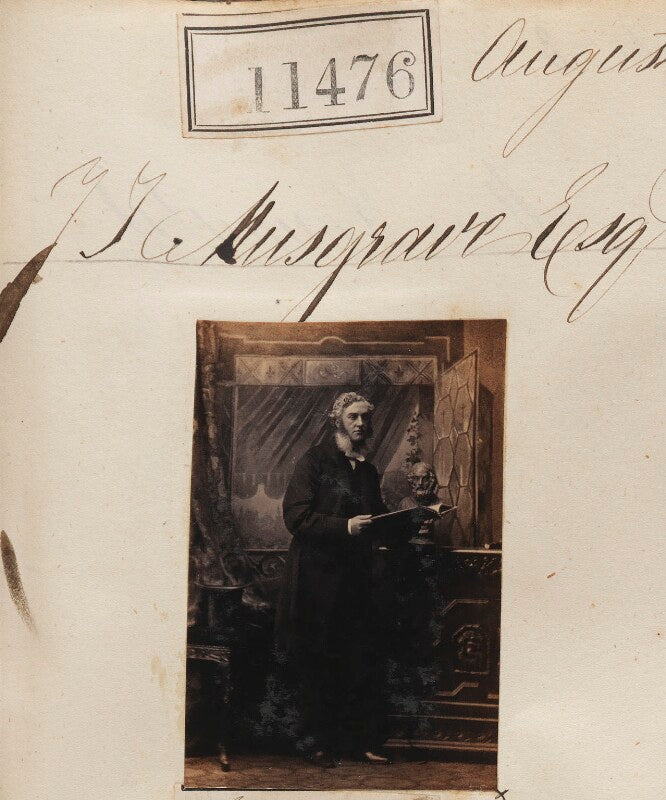 11476
August
T T Musgrave Esq